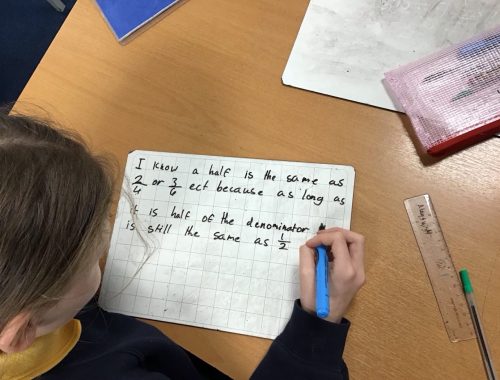 I know a half is the same as
2/4 or 3/6 ect because as long as
it is half of the denominator
is still the same as 1/2